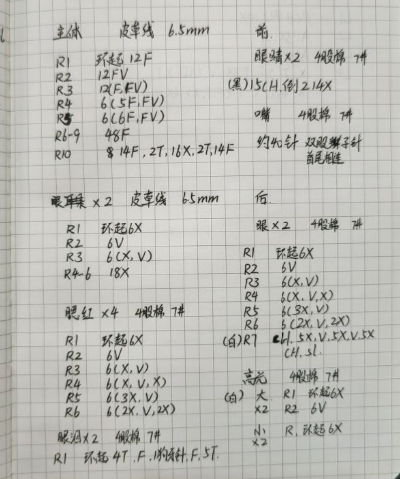 主体 皮草线 6.5mm
R1 环起12F
R2 12FV
R3 12(F,FV)
R4 6(5F,FV)
R5 6(6F,FV)
R6-9 48F
R10 14F,2T,16X,2T,14F
×2 皮草线 6.5mm
R1 环起6X
R2 6V
R3 6(X,V)
R4-6 18X
腮红×4 4股棉 7#
R1 环起6X
R2 6V
R3 6(X,V)
R4 6(X,V,X)
R5 6(3X,V)
R6 6(2X,V,2X)
眼泪×2 4股棉 7#
R1 环起4T,F,1狗牙针,F,5T.
前.
眼睛×2 4股棉 7#
(黑)15CH,倒2 14X
嘴 4股棉 7#
约40针 双股辫子针
首尾相连
后.
眼×2 4股棉 7#
R1 环起6X
R2 6V
R3 6(X,V)
R4 6(X,V,X)
R5 6(3X,V)
R6 6(2X,V,2X)
(白)R7 CH,5X,V,5X,V,5X
CH,sl.
高光 4股棉 7#
(白) 大 R1 环起6X
×2 R2 6V
小 R1 环起6X
×2